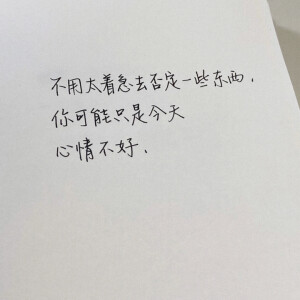 不用太着急去否定一些东西，
你可能只是今天
心情不好、